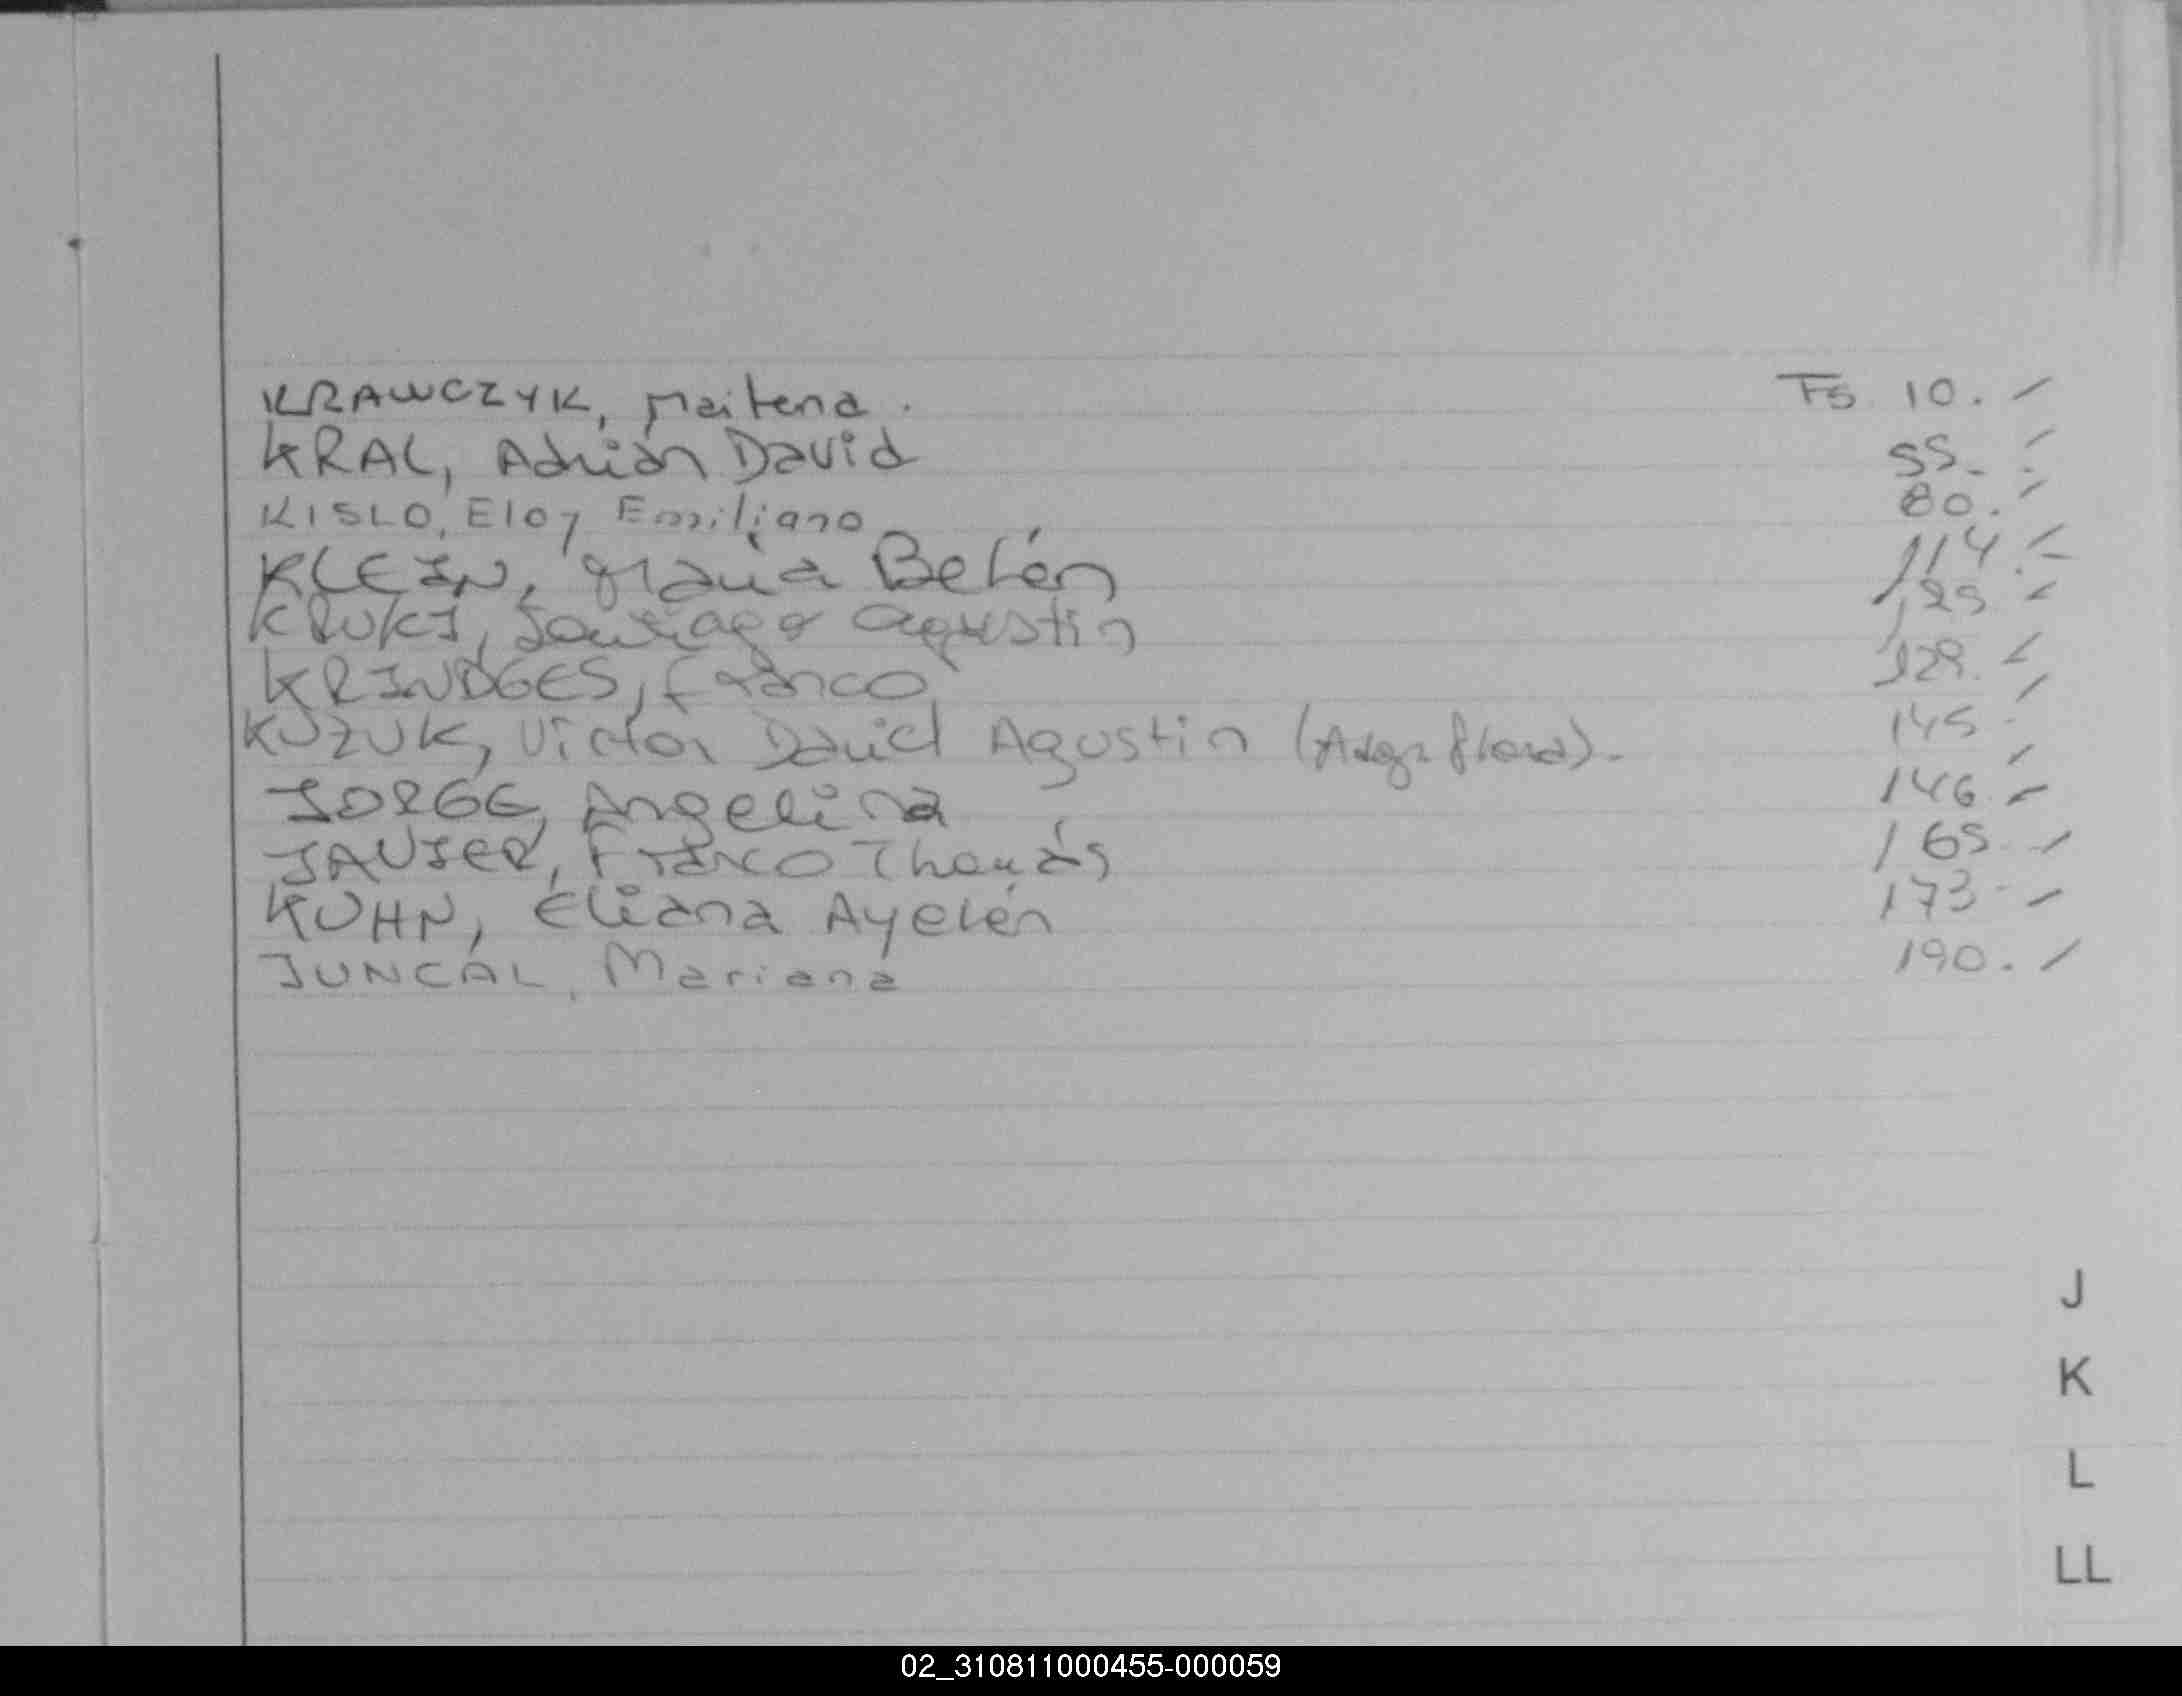 KRAWCZYK, Maitena. Fs 10. -
KRAL, Adrián David 55. -
KISLO, Eloy Emiliano 80. -
KLEIN, María Belén 114. -
KRUKI, Santiago Agustin 125 -
KRINDGES, Franco 129. -
KUZUK, Victor David Agustin ( 145 -
JORGE, Angelina 146 -
JAVIER, Franco Thomás 165. -
KUHN, Eliana Ayelén 173 -
JUNCAL, Mariana 190. -
J
K
L
LL
02_310811000455-000059